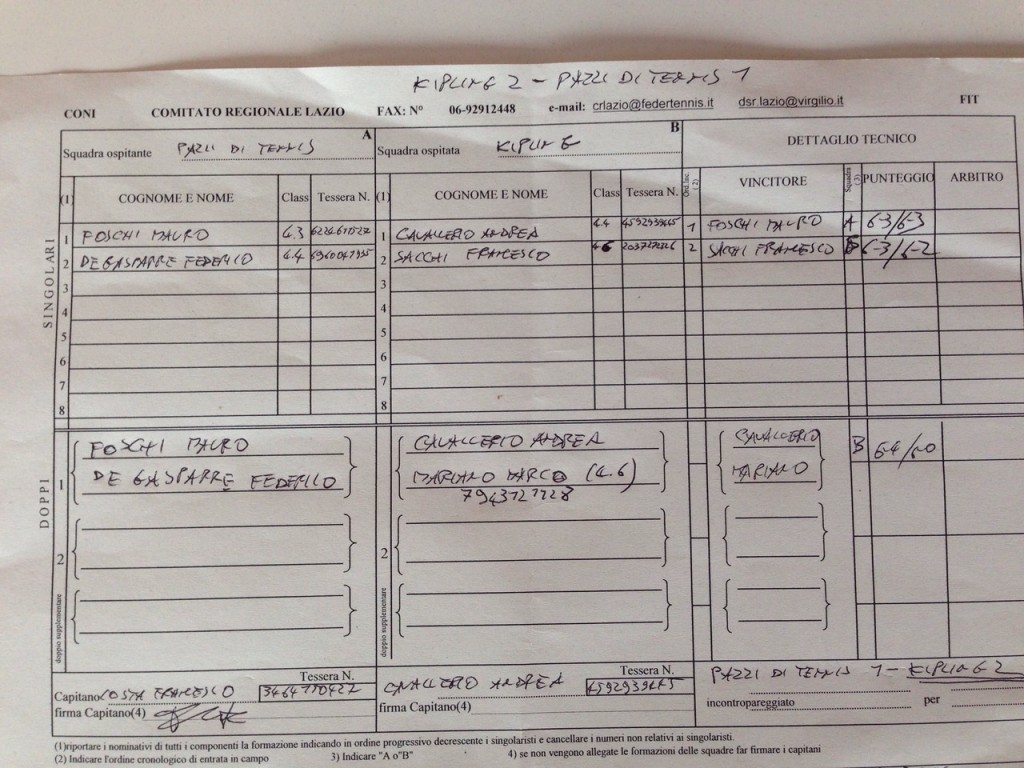 KIPLING 2 - PAZZI DI TENNIS 1
CONI COMITATO REGIONALE LAZIO FAX: N° 06-92912448 e-mail: crlazio@federtennis.it dsr.lazio@virgilio.it FIT
A B
Squadra ospitante PAZZI DI TENNIS Squadra ospitata KIPLING DETTAGLIO TECNICO
(1) COGNOME E NOME Class Tessera N. (1) COGNOME E NOME Class Tessera N. (2) VINCITORE Squadra (3) PUNTEGGIO ARBITRO
SINGOLARI
1 FOSCHI MAURO 4.3 1 CAVALLERIO ANDREA 4.4 1 FOSCHI MAURO A 6-3/6-3
2 DE GASPARRE FEDERICO 4.4 2 SACCHI FRANCESCO 4.6 2 SACCHI FRANCESCO B 6-3/6-2
3 3
4 4
5 5
6 6
7 7
8 8
DOPPI
1 FOSCHI MAURO CAVALLERIO ANDREA CAVALLERIO B 6-4/6-0
DE GASPARRE FEDERICO MARIANO MARCO (4.6) MARIANO
7943727728
2 2
doppio supplementare doppio supplementare
Tessera N. Tessera N.
Capitano COSTA FRANCESCO CAVALLERIO ANDREA PAZZI DI TENNIS 1 - KIPLING 2
firma Capitano(4) firma Capitano(4) incontropareggiato per
(1)riportare i nominativi di tutti i componenti la formazione indicando in ordine progressivo decrescente i singolaristi e cancellare i numeri non relativi ai singolaristi.
(2) Indicare l'ordine cronologico di entrata in campo 3) Indicare "A o"B" 4) se non vengono allegate le formazioni delle squadre far firmare i capitani